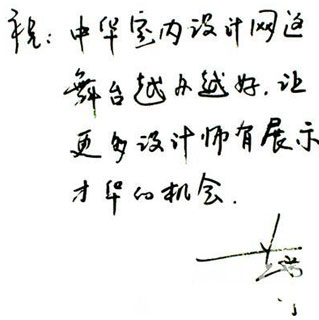 祝：中华室内设计网这
舞台越办越好，让
更多设计师有展示
才华的机会.